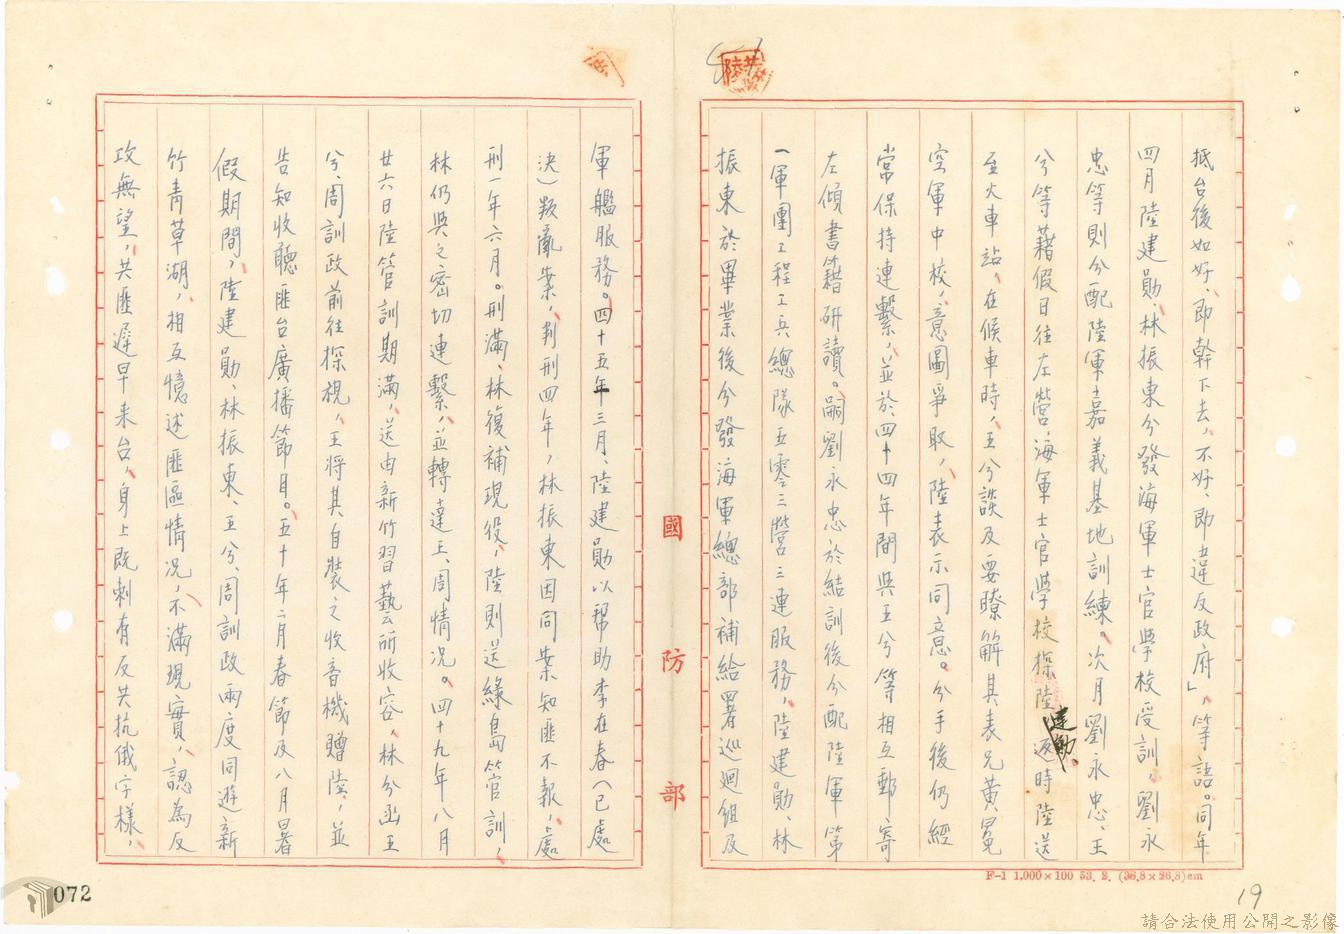 抵台後如好、即幹下去，不好、即違反政府」，等語。同年
四月陸建勛、林振東分發海軍士官學校受訓，劉永
忠等則分配陸軍嘉義基地訓練。次月劉永忠、王
兮等藉假日往左營，海軍士官學校探陸建勛、返時陸送
至火車站，在候車時，王兮談及要瞭解其表兄黃冕
空軍中校，意圖爭取，陸表示同意。分手後仍經
常保持連繫，並於四十四年間與王兮等相互郵寄
左傾書籍研讀。嗣劉永忠於結訓後分配陸軍第
一軍團工程工兵總隊五零三營三連服務，陸建勛、林
振東於畢業後分發海軍總部補給署巡迴組及
軍艦服務。四十五年三月、陸建勛以幫助李在春（已處
決）叛亂案，判刑四年，林振東因同案知匪不報，處
刑一年六月。刑滿、林復補現役，陸則送綠島管訓，
林仍與之密切連繫，並轉達王、周情況。四十九年八月
廿六日陸管訓期滿，送由新竹習藝所收容，林分函王
兮、周訓政前往探視，王將其自裝之收音機贈陸，並
告知收聽匪台廣播節目。五十年二月春節及八月暑
假期間，陸建勛、林振東、王兮、周訓政兩度同遊新
竹青草湖，相互憶述匪區情況，不滿現實，認為反
攻無望，共匪遲早來台，身上既刺有反共抗俄字樣，
國防部
F-1 1,000×100 53. 2. (36.8×26.8)cm
19
072
請合法使用公開之影像